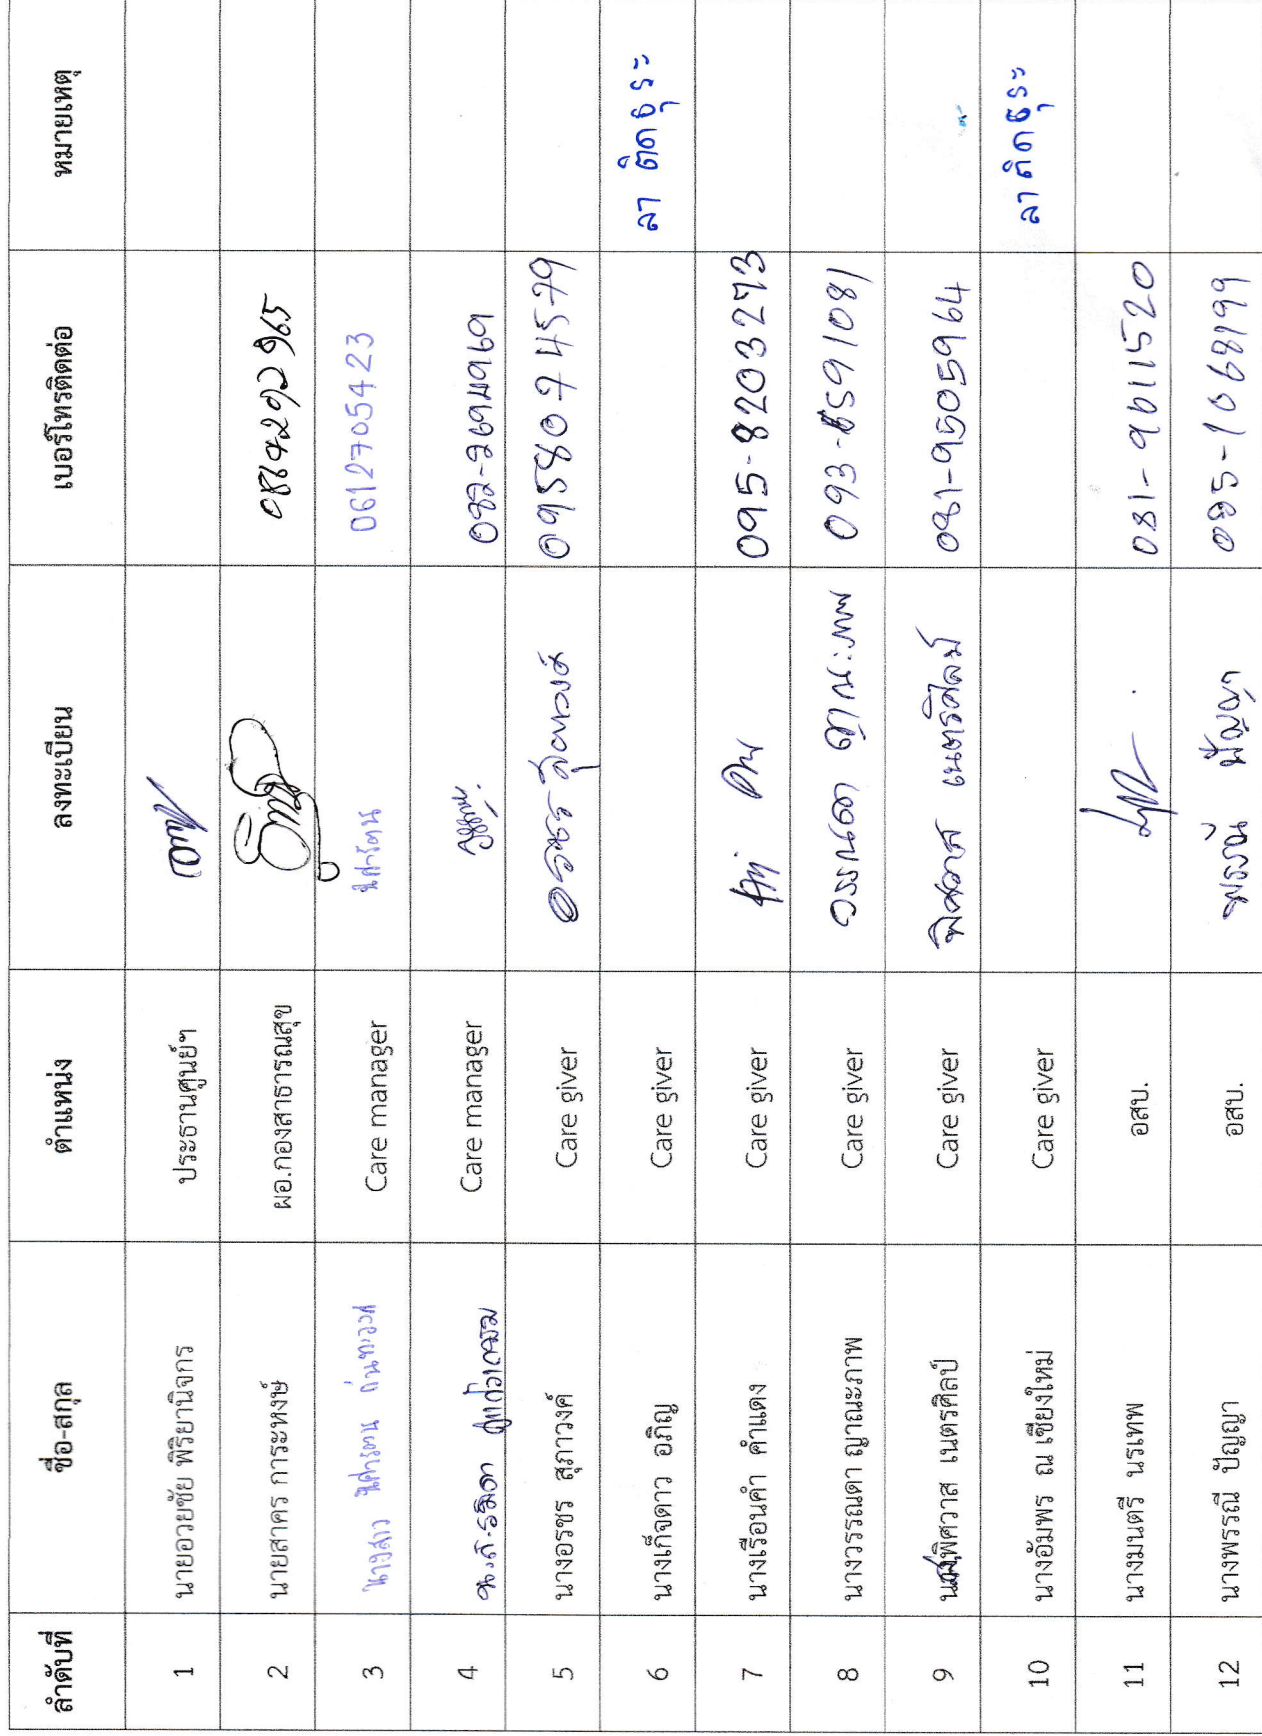 ลำดับที่ ชื่อ-สกุล ตำแหน่ง ลงทะเบียน เบอร์โทรติดต่อ หมายเหตุ
1 นายอวยชัย พิริยานิจกร ประธานศูนย์ฯ
2 นายสาคร การะหงษ์ ผอ.กองสาธารณสุข 0864292965
3 นางสาว Care manager 0612705423
4 Care manager 082-2694969
5 นางอรชร สุภาวงค์ Care giver อรชร สุภาวงค์ 0958074579
6 นางเก็จดาว อภิญ Care giver ลา ติดธุระ
7 นางเรือนคำ คำแดง Care giver 095-8203273
8 นางวรรณดา ญาณะภาพ Care giver วรรณดา ญาณะภาพ 093-1081
9 พิศวาส เนตรศิลป์ Care giver พิศวาส เนตรศิลป์ 081-9505964
10 นางอัมพร ณ เชียงใหม่ Care giver ลาติดธุระ
11 นางมนตรี นรเทพ อสบ. 081-9611520
12 นางพรรณี ปัญญา อสบ. พรรณี ปัญญา 085-1068199